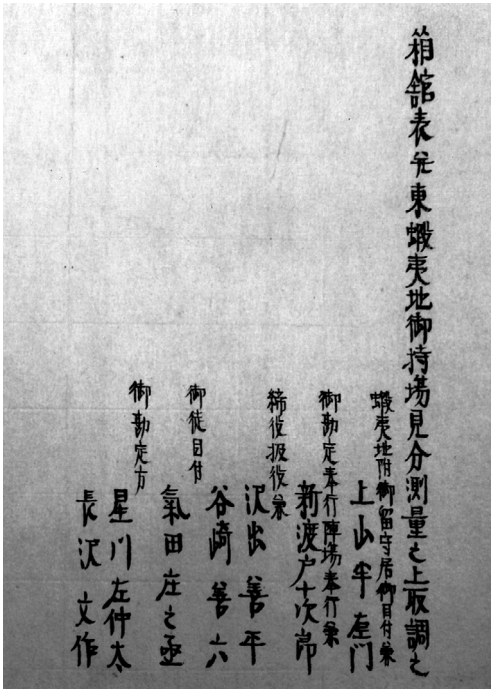 箱舘表並東蝦夷地御持場見分測量之上取調之
蝦夷地附御留守居御目付兼
上山半右衛門
御勘定奉行陣場奉行兼
新渡戸十次郎
締役扱役兼
沢出善平
谷崎善六
御徒目付
氣田庄之丞
御勘定方
星川左仲太
長沢文作